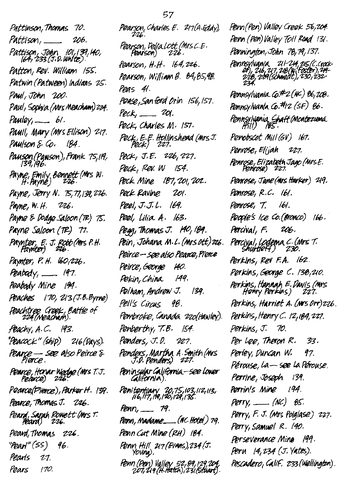 57
Pattinson, Thomas 70.
Pattison, ____ 206.
Pattison, John 101, 139, 140,
164, 233 (J.D. Waite).
Patton, Rev. William 155.
Patwin (Patween) Indians 25.
Paul, John 200.
Paul, Sophia (Mrs Meacham) 224.
Pauley, ____ 61.
Paull, Mary (Mrs Ellison) 217.
Paulson & Co. 184.
Pawson (Pawson), Frank 75, 119,
139, 196.
Payne, Emily Bennett (Mrs W.
H. Payne) 226.
Payne, Jerry N. 75, 77, 139, 226.
Payne, W.H. 226.
Payne & Dodge Saloon (TR) 75.
Payne Saloon (TR) 77.
Paynter, E.J. Rott (Mrs P.H.
Paynter) 226.
Paynter, P.H. 160, 226.
Peabody, ____ 197.
Peabody Mine 194.
Peaches 170, 213 (J.B. Byrne)
Peachtree Creek, Battle of
224 (Meacham).
Peachy, A.C. 193.
"Peacock" (ship) 216 (Days).
Pearce — see also Peirce &
Pierce.
Pearce, Honor Wedge (Mrs T.J.
Pearce) 226.
Pearce (Pierce), Parker H. 159.
Pearce, Thomas J. 226.
Peard, Sarah Rowett (Mrs T.
Peard) 226.
Peard, Thomas 226.
"Pearl" (SS) 96.
Pearls 27.
Pears 170.
Pearson, Charles E. 217 (A. Eddy),
226.
Pearson, Delia Lott (Mrs C.E.
Pearson) 226.
Pearson, H.H. 164, 226.
Pearson, William B. 84, 85, 98.
Peas 41.
Pease, Sanford Orin 156, 157.
Peck, ____ 201.
Peck, Charles M. 157.
Peck, E.E. Hollinshead (Mrs J.
Peck) 227.
Peck, J.E. 226, 227.
Peck, Rev W 154.
Peck Mine 187, 201, 202.
Peck Ravine 201.
Peel, J.J.L. 169.
Peel, Lilia A. 163.
Pegg, Thomas J. 140, 184.
Pein, Johana M.L. (Mrs Ott) 226.
Peirce — see also Pearce, Pierce
Peirce, George 140.
Pekin, China 149.
Pelham, Andrew J. 139.
Pell's Circus 98.
Pembroke, Canada 220 (Hanley)
Pemberthy, T.B. 154.
Penders, J.D. 227.
Penders, Martha A. Smith (Mrs
J.D. Penders) 227.
Peninsular California — see Lower
California.
Penitentiary 20, 75, 103, 112, 113,
116, 117, 118, 130, 129, 135.
Penn, ____ 79.
Penn, Madame ____ (NC Hotel) 79.
Penn Cut Mine (RH) 184.
Penn Hill 217 (Evans), 234 (J.
Young).
Penn (Pen) Valley 52, 89, 129, 204,
207, 219 (H. Hatch), 231 (Stuart).
Penn (Pen) Valley Creek 56, 204.
Penn (Pen) Valley Toll Road 131.
Pennington, John 78, 79, 137.
Pennsylvania Co. #1/2 (NC) 86, 108.
Pennsylvania Co. #1/2 (SF) 86.
Penobscot Mill (GV) 167.
Penrose, Elijah 227.
Penrose, Elizabeth Jago (Mrs E.
Penrose) 227.
Penrose, Jane (Mrs Harker) 219.
Penrose, R.C. 161.
Penrose, T. 161.
People's Ice Co (Bronco) 166.
Percival, F. 206.
Percival, Lodema C. (Mrs T.
Shurtleff) 230.
Perkins, Rev F.A. 162.
Perkins, George C. 138, 210.
Perkins, Hannah E. Davis (Mrs
Henry Perkins) 227.
Perkins, Harriet A. (Mrs Orr) 226.
Perkins, Henry C. 12, 184, 227.
Perkins, J. 70.
Per Lee, Theron R. 33.
Perley, Duncan W. 97.
Pérouse, La — see La Pérouse.
Perrine, Joseph 139.
Perrin's Mine 194.
Perry, ____ (NC) 85.
Perry, F.J. (Mrs Polglase) 227.
Perry, Samuel R. 140.
Perseverance Mine 199.
Peru 19, 234 (J. Yates).
Pescadero, Calif. 233 (Wellington).